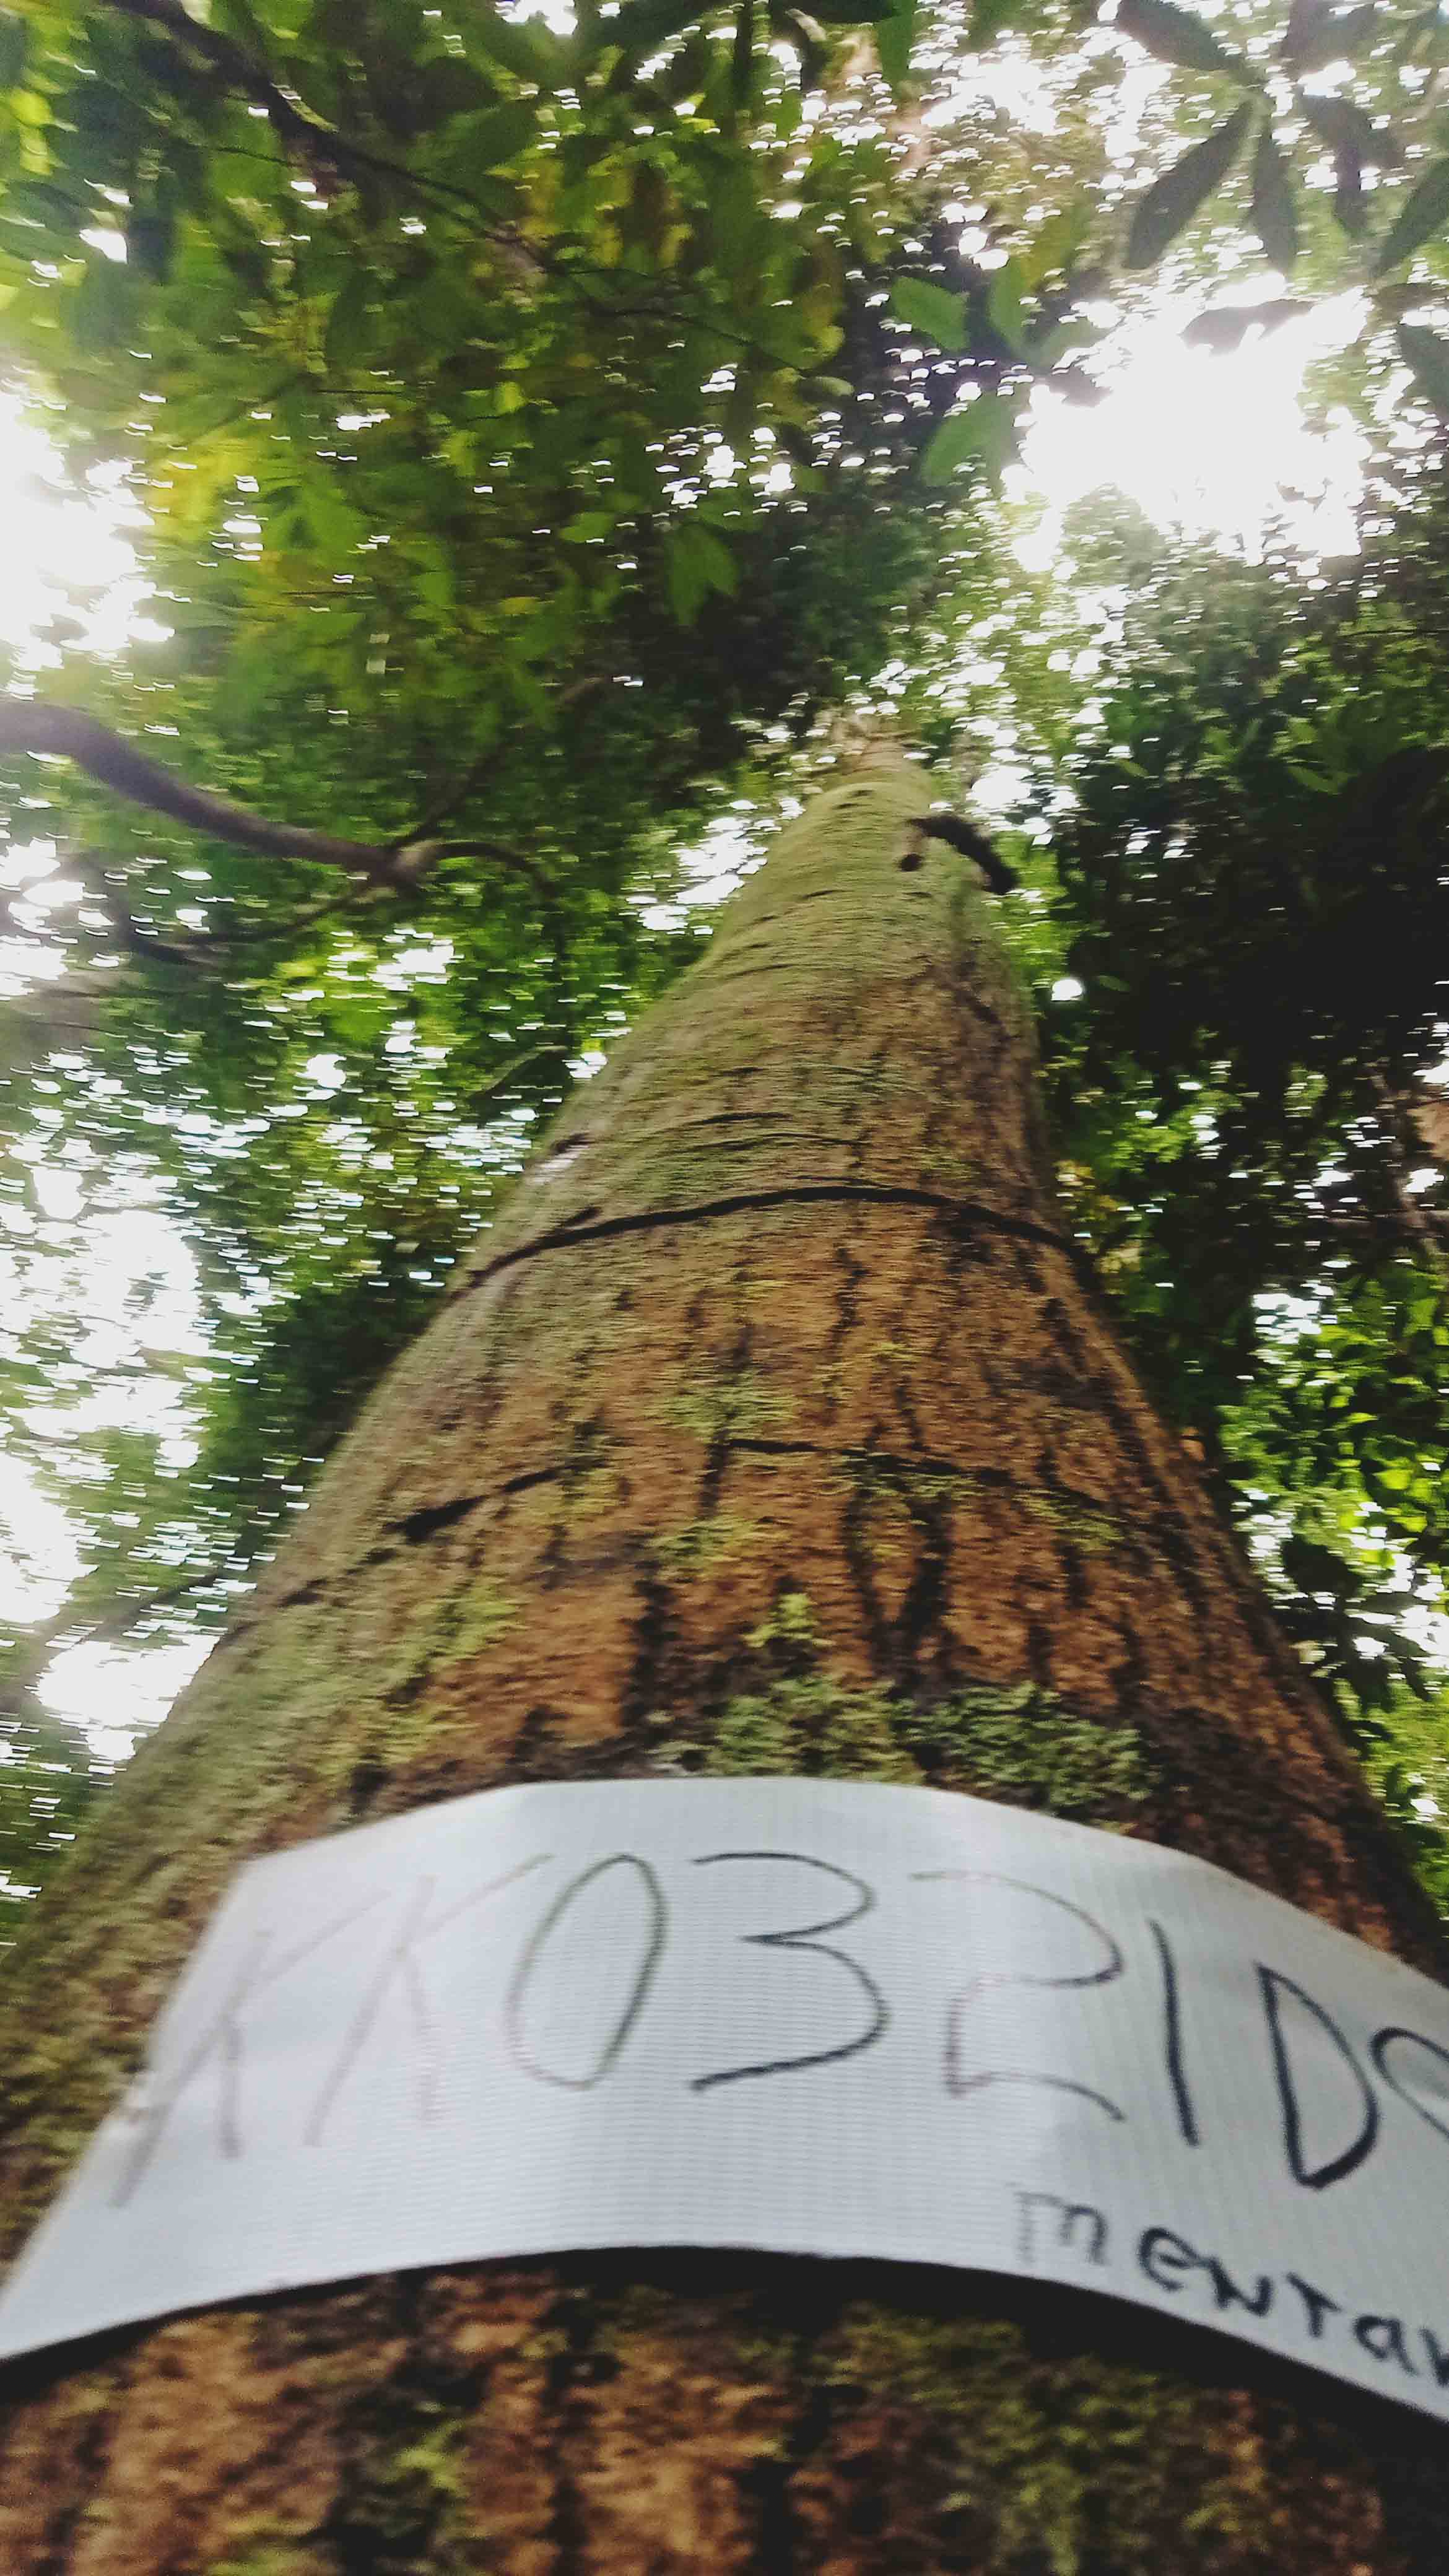 KK0321D
mentaw